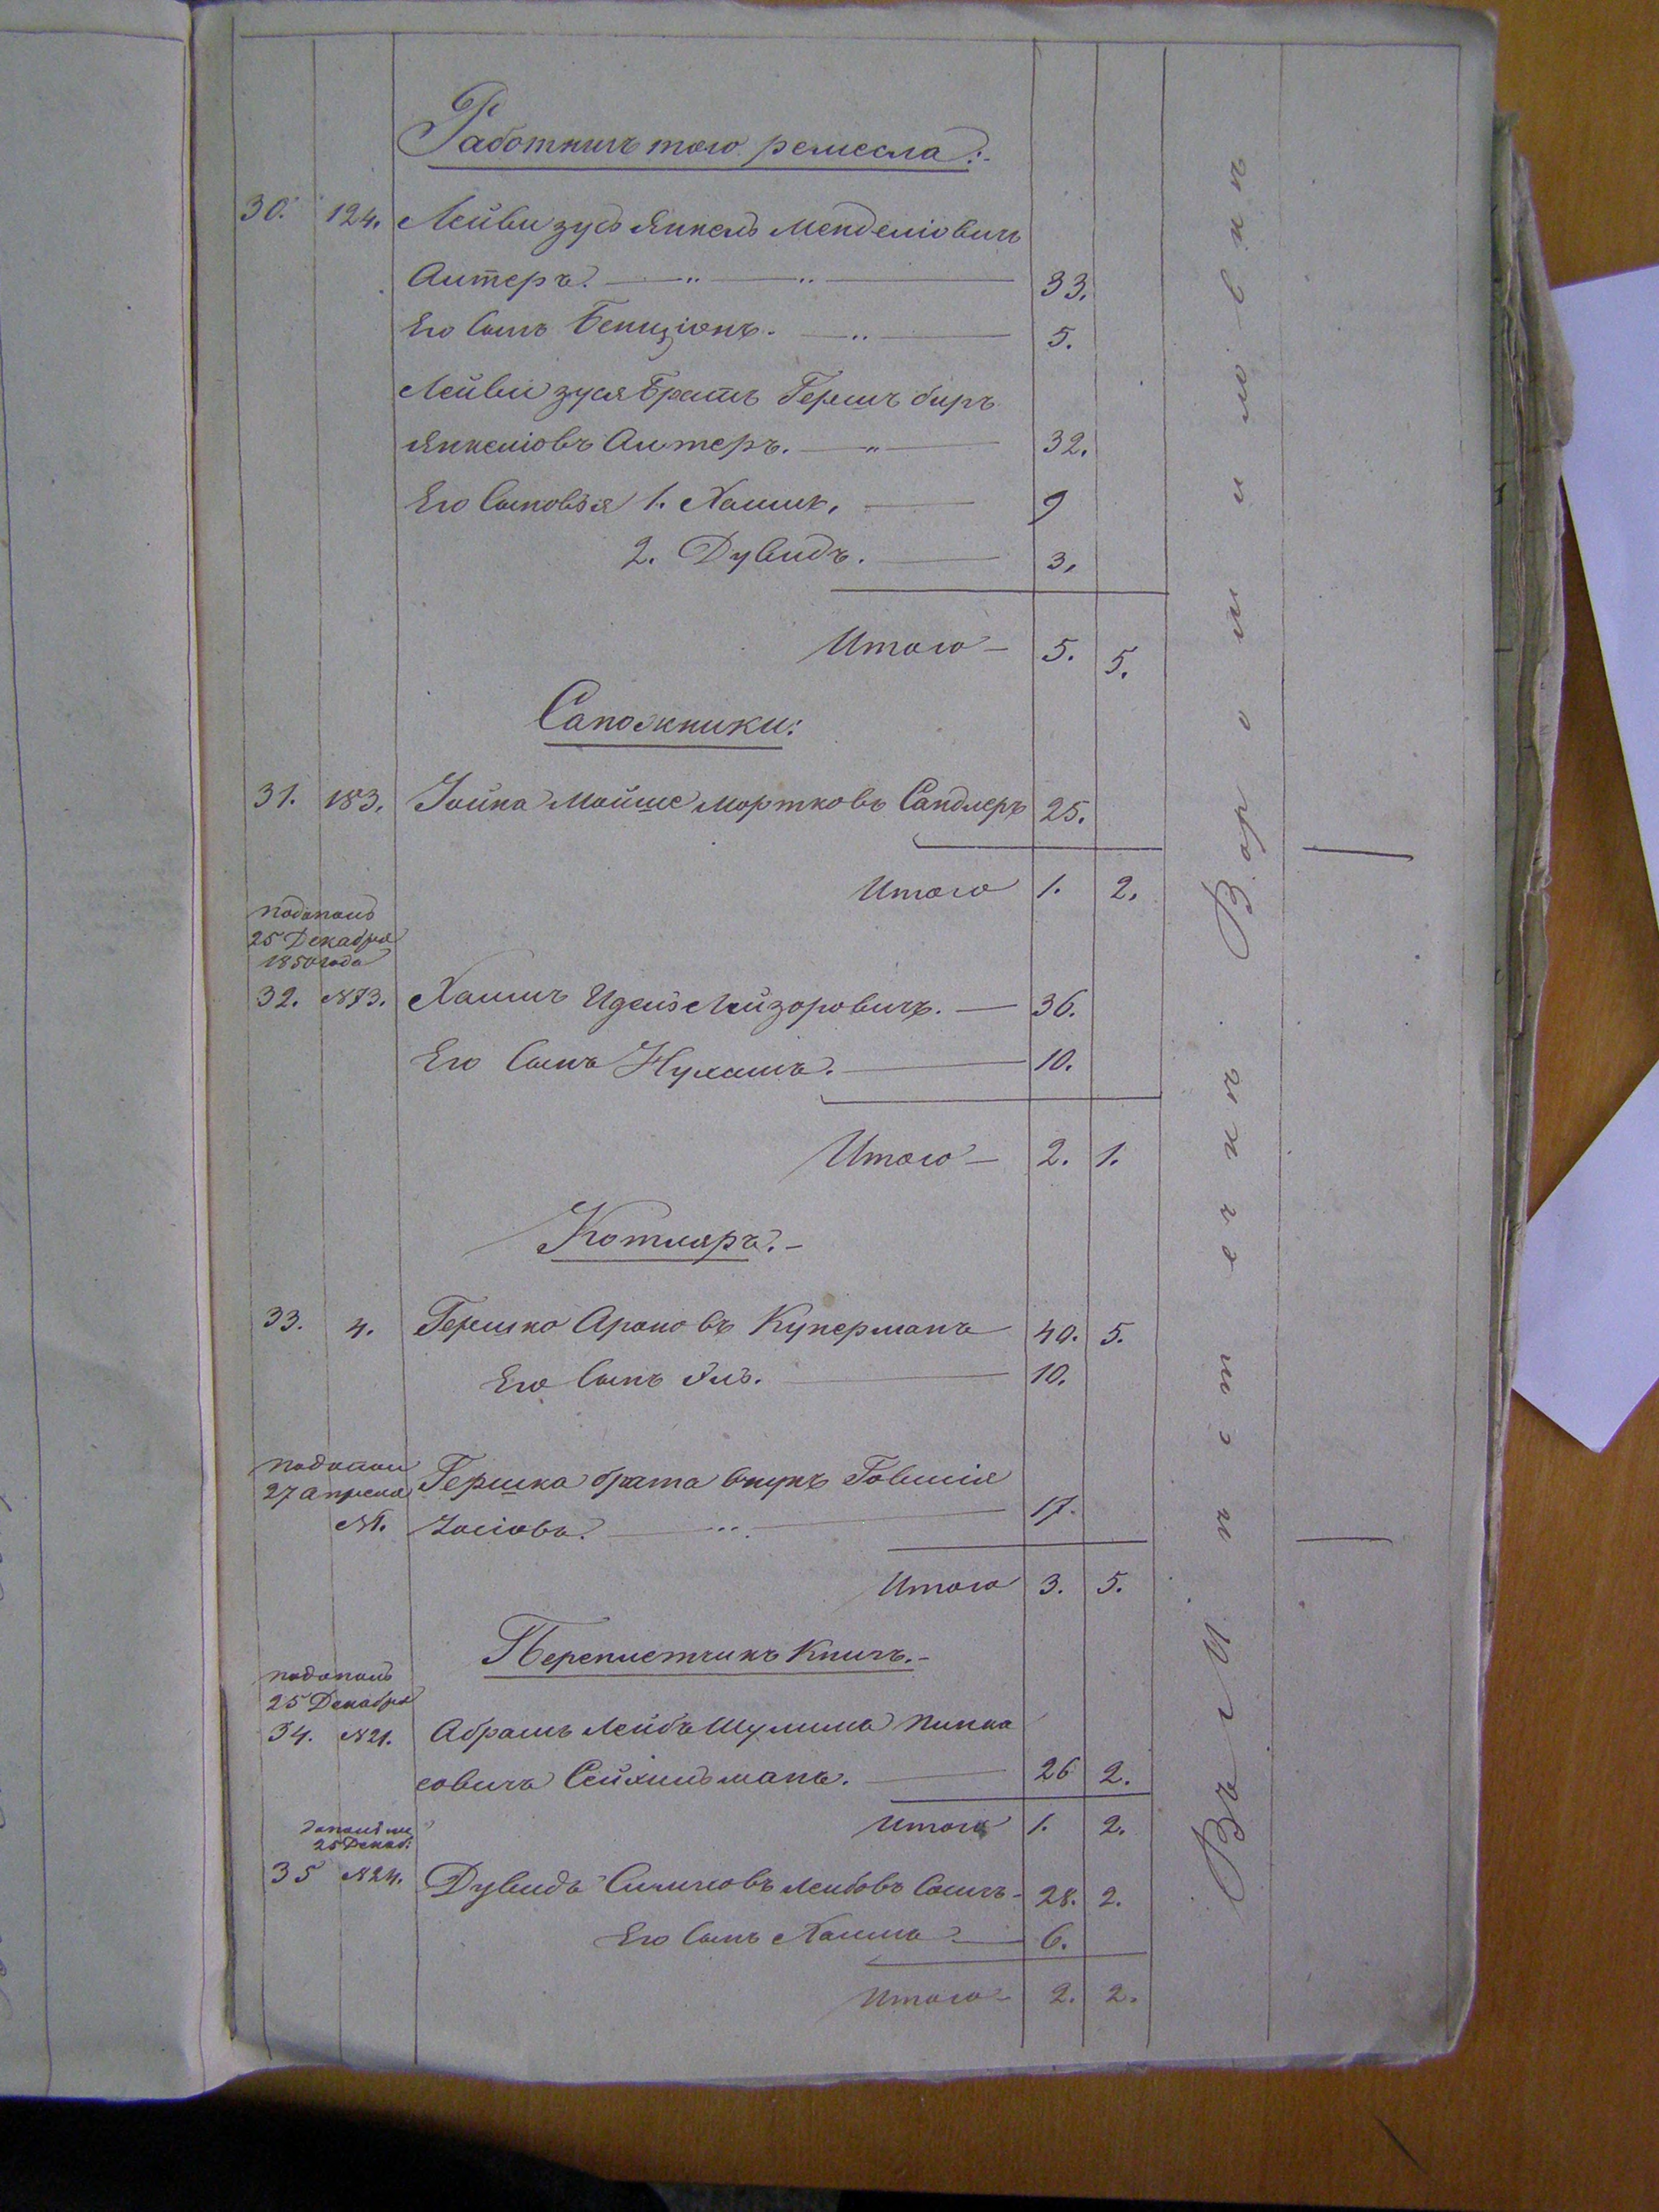 Работникъ того ремесла:-
30. 124. Лейви зусь Янкель Менделіовичъ
Алтеръ. 33.
Его Сынъ Бенціонъ. 5.
Лейви зуся Братъ Гершъ биръ
Янкеліовъ Алтеръ. 32.
Его Сыновья 1. Хаимъ, 9
2. Дувидъ. 3.
Итого 5. 5.
Сапожники:
31. 183. Іойна Мойше Мортковъ Сандлеръ 25.
Итого 1. 2.
25 Декабря
1850 года
32. №73. Хаимъ Идель Лейзоровичъ. 36.
Его Сынъ Нухимъ. 10.
Итого 2. 1.
Котляръ.-
33. 4. Гершко Ароновъ Куперманъ 40. 5.
Его Сынъ Эль. 10.
27 апреля Гершка брата внукъ Говшія
Іосіовъ. 17.
Итого 3. 5.
Переписчикъ Книгъ.-
25 Декабря
34. №21. Абрамъ Лейбъ Шулимъ Пинка
совичъ 26 2.
Итого 1. 2.
25 Декаб:
35 №24. Дувидъ 28. 2.
Его Сынъ Хаимъ 6.
Итого 2. 2.